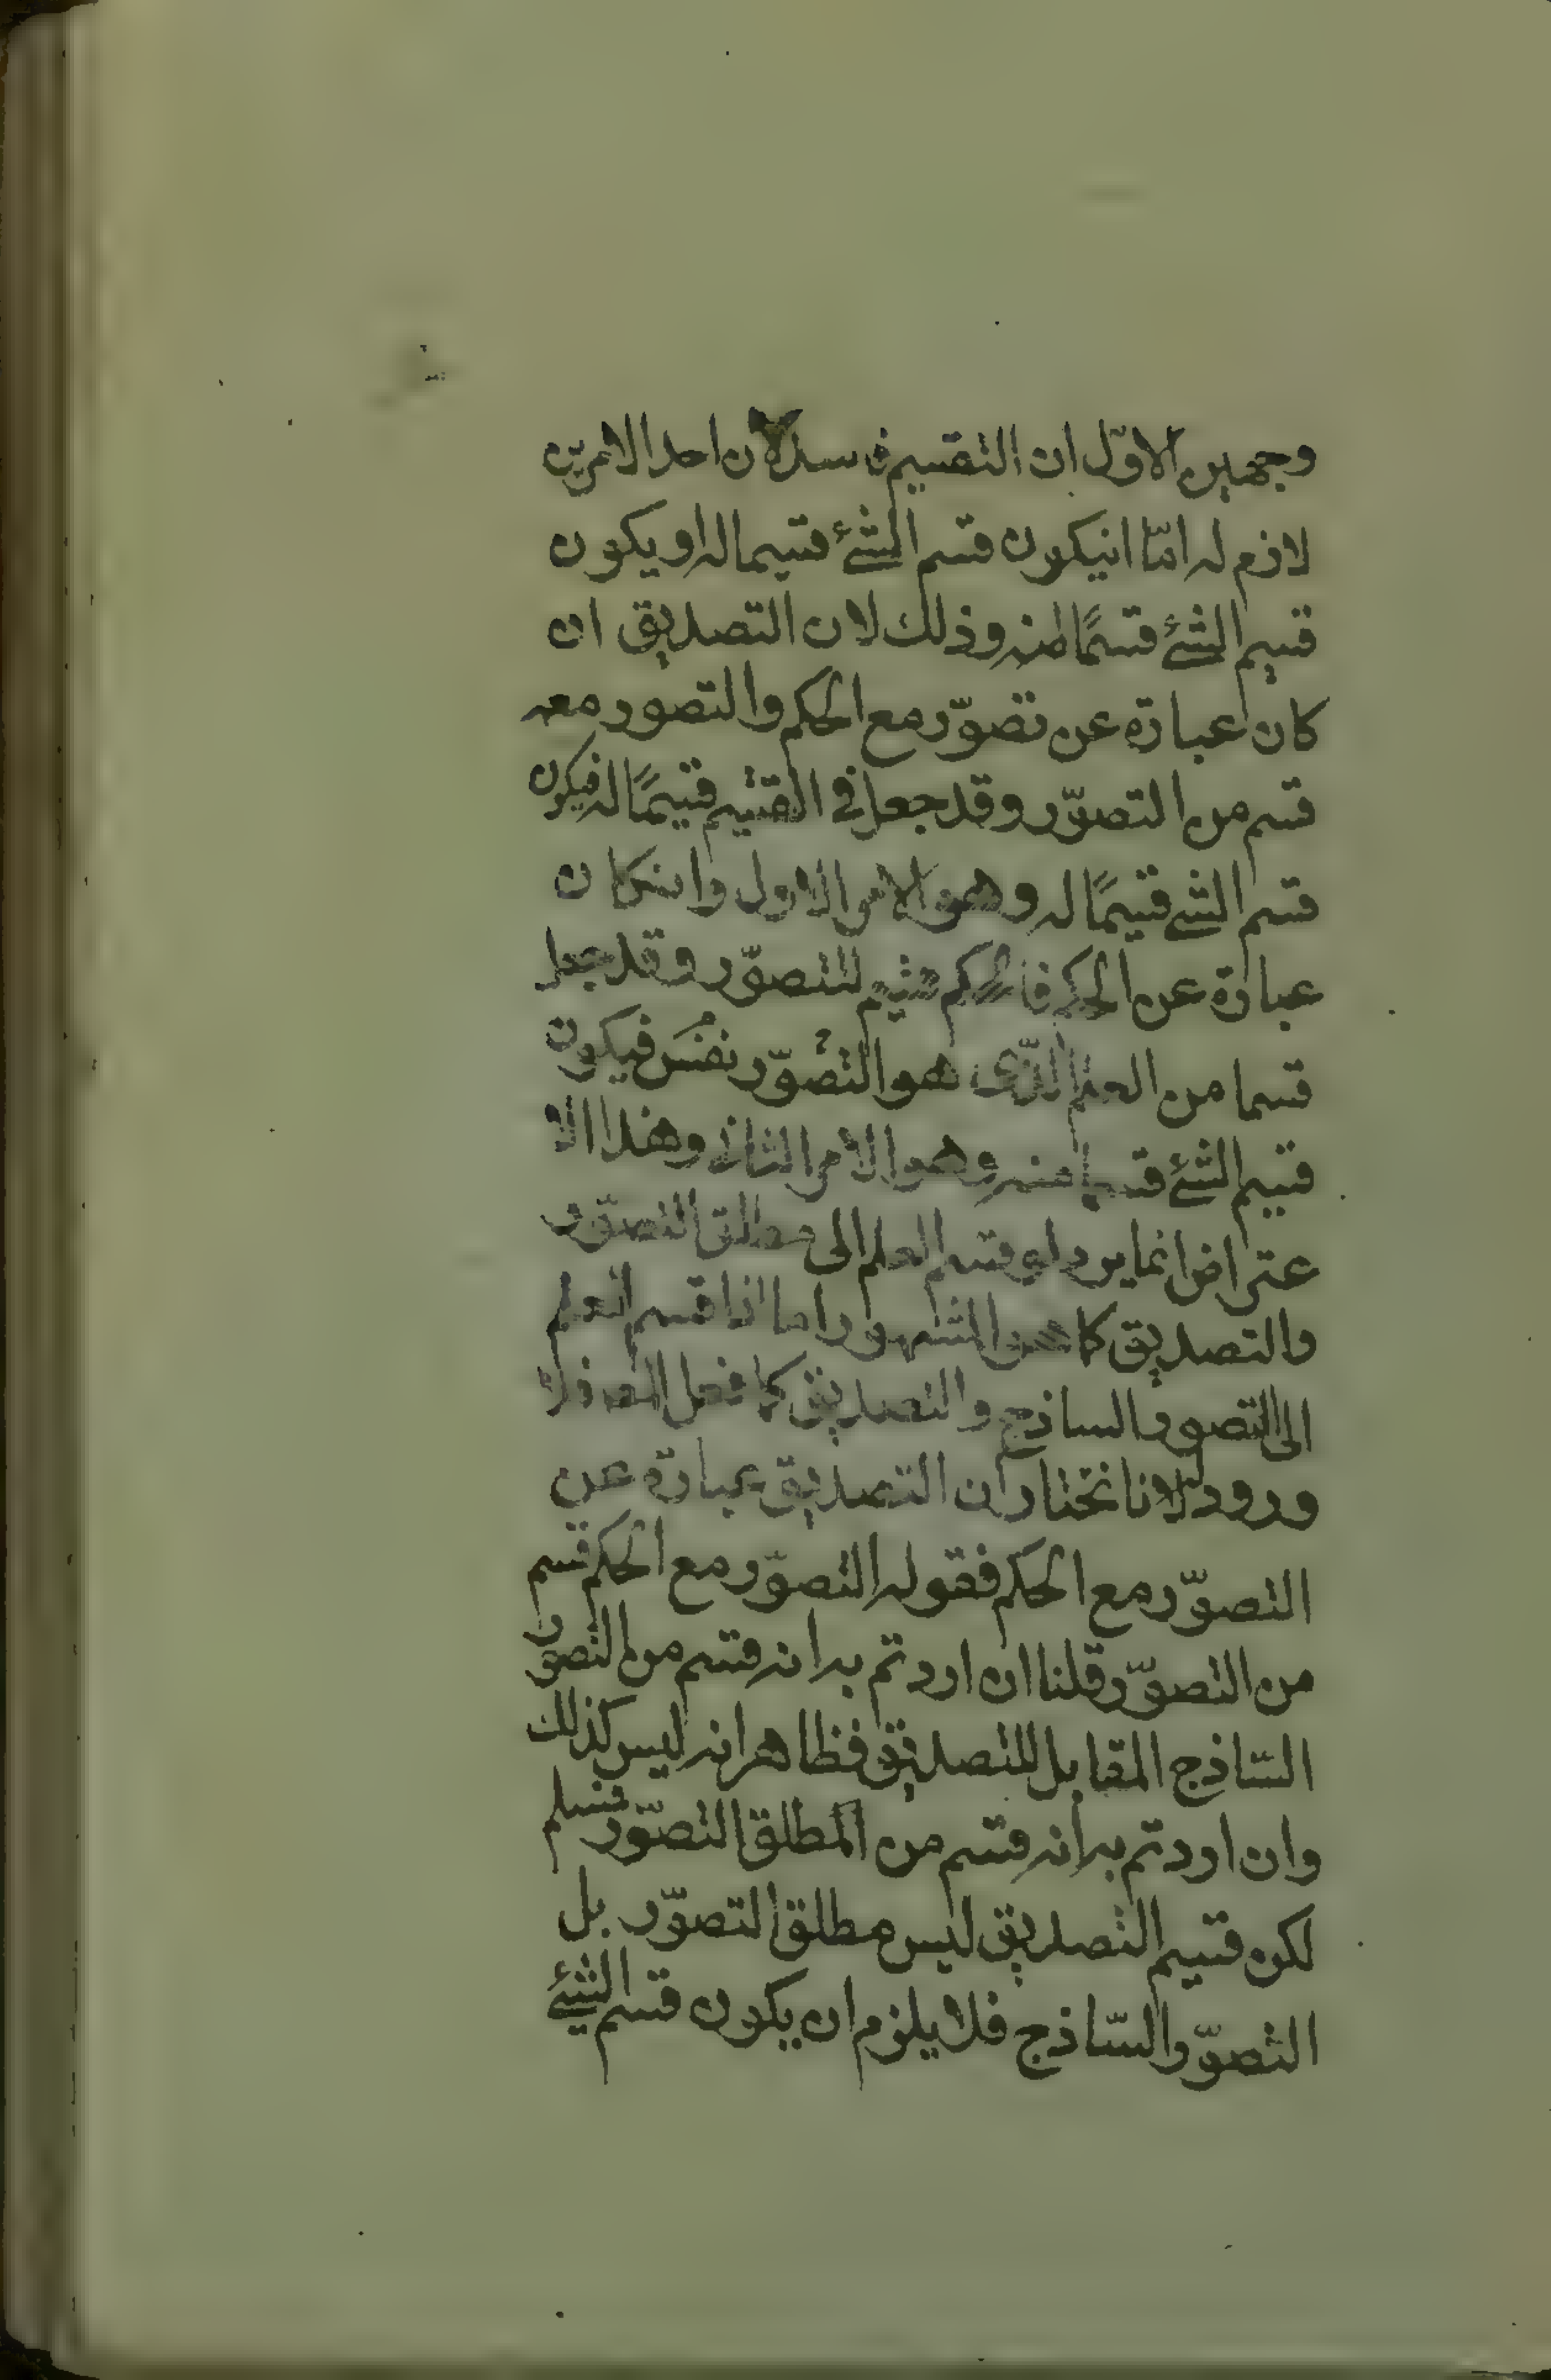 وجهين الاوّل ان التقسيم فاسد لان احد الامرين
لازم له امّا انيكون قسم الشئ قسيما له او يكون
قسيم الشئ قسمًا منه وذلك لان التصديق ان
كان عبارة عن تصوّر مع الحكم والتصور معه
قسم من التصوّر وقد جعل في التقسيم قسيمًا له فيكون
قسم الشئ قسيمًا له وهو الامر الاول وانكان
عبارة عن الحكم فالحكم قسيم للتصوّر وقد جعل
قسما من العلم الذى هو التصوّر نفسَ فيكون
قسيم الشئ قسما منه وهو الامر الثانى وهذا الا
عتراض انما يرد لو قسم العلم الى مطلق التصوّر
والتصديق كما هو المشهور اما اذا قسم العلم
الى التصور الساذج والتصديق كما فعل المص فلا
ورود له لانا نختار ان التصديق عبارة عن
التصوّر مع الحكم فقوله التصوّر مع الحكم قسم
من التصوّر قلنا ان اردتم به انه قسم من التصور
السّاذج المقابل للتصديق فظاهر انه ليس كذلك
وان اردتم به انه قسم من المطلق التصوّر فمسلم
لكن قسيم التصديق ليس مطلق التصوّر بل
التصوّر السّاذج فلا يلزم ان يكون قسم الشئ